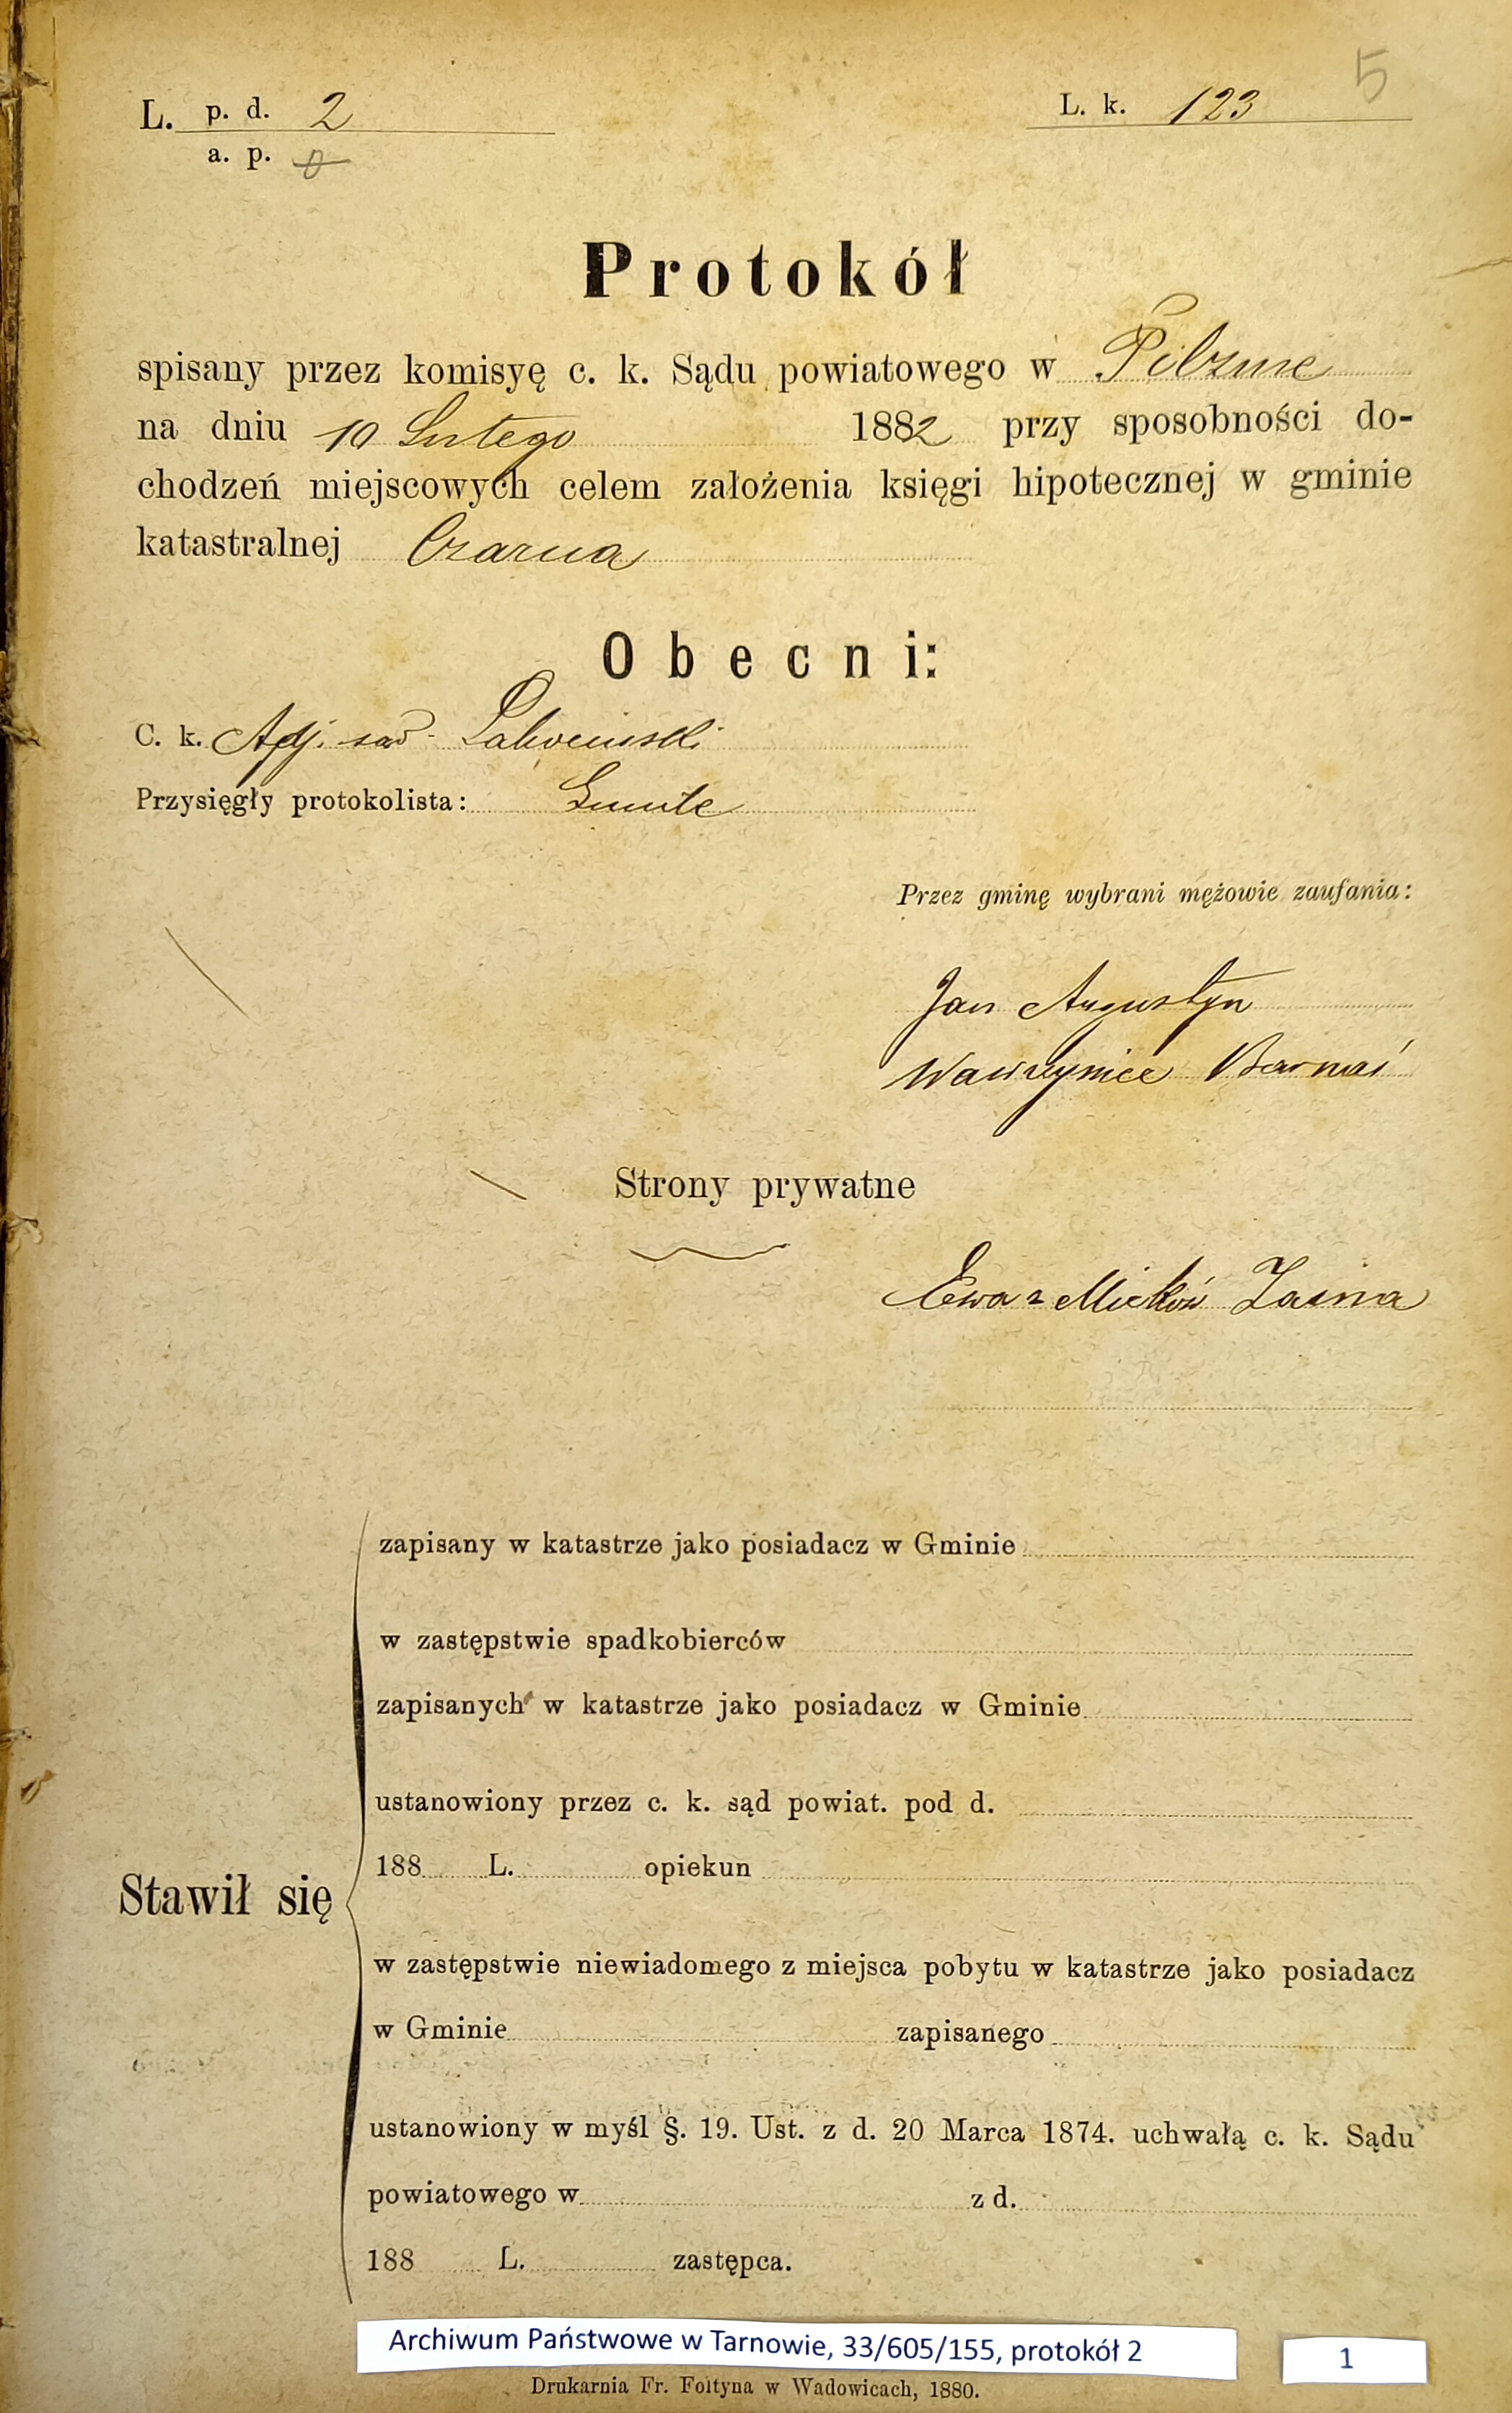 5
L. p. d. 2 L. k. 123
a. p. 0
Protokół
spisany przez komisyę c. k. Sądu powiatowego w Pilznie
na dniu 10 Lutego 1882 przy sposobności do-
chodzeń miejscowych celem założenia księgi hipotecznej w gminie
katastralnej Czarna
Obecni:
C. k. Adj. sąd.
Przysięgły protokolista:
Przez gminę wybrani mężowie zaufania:
Jan Augustyn
Wawrzyniec Barnaś
Strony prywatne
Ewa z Zasina
zapisany w katastrze jako posiadacz w Gminie
w zastępstwie spadkobierców
zapisanych w katastrze jako posiadacz w Gminie
ustanowiony przez c. k. sąd powiat. pod d.
188 L. opiekun
Stawił się
w zastępstwie niewiadomego z miejsca pobytu w katastrze jako posiadacz
w Gminie zapisanego
ustanowiony w myśl §. 19. Ust. z d. 20 Marca 1874. uchwałą c. k. Sądu
powiatowego w z d.
188 L. zastępca.
Archiwum Państwowe w Tarnowie, 33/605/155, protokół 2
1
Drukarnia Fr. Foltyna w Wadowicach, 1880.